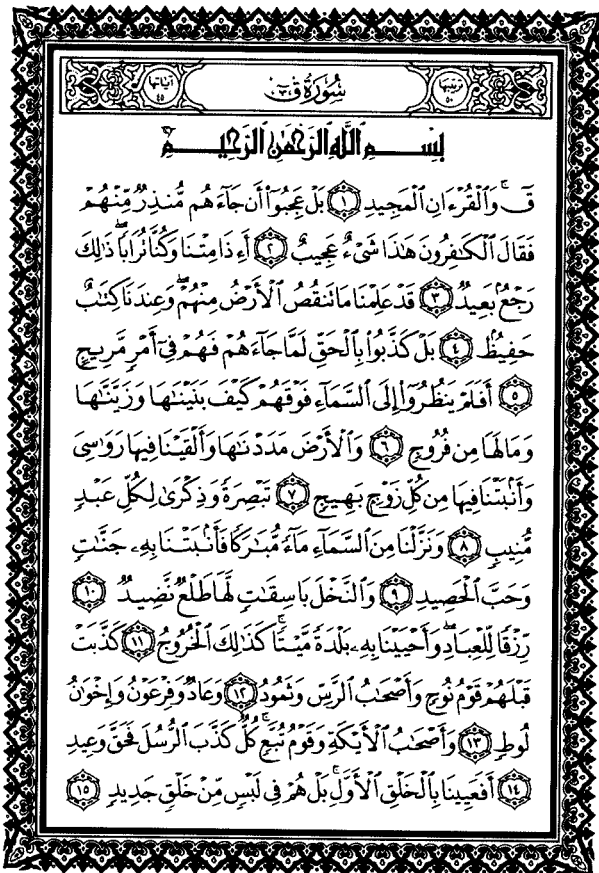 ترتيبها ٥٠ سُورَةُ ق آياتها ٤٥
بِسْمِ ٱللَّهِ ٱلرَّحْمَٰنِ ٱلرَّحِيمِ
قٓۚ وَٱلْقُرْءَانِ ٱلْمَجِيدِ ١ بَلْ عَجِبُوٓا۟ أَن جَآءَهُم مُّنذِرٌ مِّنْهُمْ
فَقَالَ ٱلْكَٰفِرُونَ هَٰذَا شَىْءٌ عَجِيبٌ ٢ أَءِذَا مِتْنَا وَكُنَّا تُرَابًاۖ ذَٰلِكَ
رَجْعٌۢ بَعِيدٌ ٣ قَدْ عَلِمْنَا مَا تَنقُصُ ٱلْأَرْضُ مِنْهُمْۖ وَعِندَنَا كِتَٰبٌ
حَفِيظٌۢ ٤ بَلْ كَذَّبُوا۟ بِٱلْحَقِّ لَمَّا جَآءَهُمْ فَهُمْ فِىٓ أَمْرٍ مَّرِيجٍ
٥ أَفَلَمْ يَنظُرُوٓا۟ إِلَى ٱلسَّمَآءِ فَوْقَهُمْ كَيْفَ بَنَيْنَٰهَا وَزَيَّنَّٰهَا
وَمَا لَهَا مِن فُرُوجٍ ٦ وَٱلْأَرْضَ مَدَدْنَٰهَا وَأَلْقَيْنَا فِيهَا رَوَٰسِىَ
وَأَنۢبَتْنَا فِيهَا مِن كُلِّ زَوْجٍۭ بَهِيجٍ ٧ تَبْصِرَةً وَذِكْرَىٰ لِكُلِّ عَبْدٍ
مُّنِيبٍ ٨ وَنَزَّلْنَا مِنَ ٱلسَّمَآءِ مَآءً مُّبَٰرَكًا فَأَنۢبَتْنَا بِهِۦ جَنَّٰتٍ
وَحَبَّ ٱلْحَصِيدِ ٩ وَٱلنَّخْلَ بَاسِقَٰتٍ لَّهَا طَلْعٌ نَّضِيدٌ ١٠
رِّزْقًا لِّلْعِبَادِۖ وَأَحْيَيْنَا بِهِۦ بَلْدَةً مَّيْتًاۚ كَذَٰلِكَ ٱلْخُرُوجُ ١١ كَذَّبَتْ
قَبْلَهُمْ قَوْمُ نُوحٍ وَأَصْحَٰبُ ٱلرَّسِّ وَثَمُودُ ١٢ وَعَادٌ وَفِرْعَوْنُ وَإِخْوَٰنُ
لُوطٍ ١٣ وَأَصْحَٰبُ ٱلْأَيْكَةِ وَقَوْمُ تُبَّعٍۚ كُلٌّ كَذَّبَ ٱلرُّسُلَ فَحَقَّ وَعِيدِ
١٤ أَفَعَيِينَا بِٱلْخَلْقِ ٱلْأَوَّلِۚ بَلْ هُمْ فِى لَبْسٍ مِّنْ خَلْقٍ جَدِيدٍ ١٥